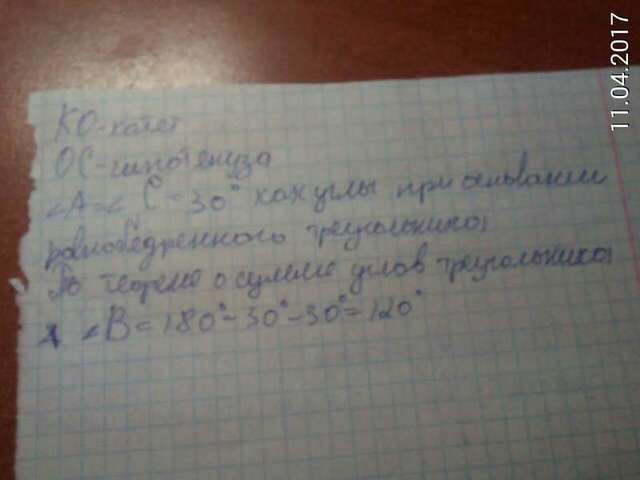 КО-катет
ОС-гипотенуза
∠А и ∠С=30° как углы при основании
равнобедренного треугольника
По теореме о сумме углов треугольника
∠В=180°-30°-30°=120°
11.04.2017